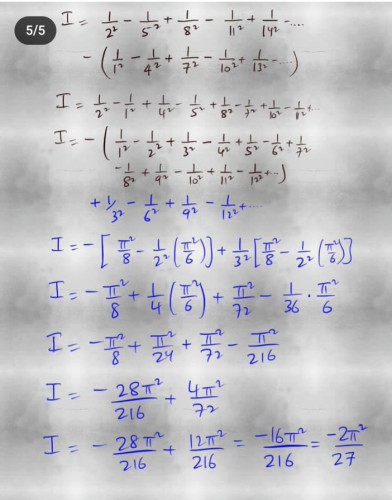 5/5
I = 1/2² - 1/5² + 1/8² - 1/11² + 1/14² - ....
- ( 1/1² - 1/4² + 1/7² - 1/10² + 1/13² - ....)
I = 1/2² - 1/1² + 1/4² - 1/5² + 1/8² - 1/7² + 1/10² - 1/11² + ..
I = - ( 1/1² - 1/2² + 1/3² - 1/4² + 1/5² - 1/6² + 1/7²
- 1/8² + 1/9² - 1/10² + 1/11² - 1/12² + ..)
+ 1/3² - 1/6² + 1/9² - 1/12² + ..
I = - [ π²/8 - 1/2² (π²/6) ] + 1/3² [ π²/8 - 1/2² (π²/6) ]
I = - π²/8 + 1/4 (π²/6) + π²/72 - 1/36 · π²/6
I = - π²/8 + π²/24 + π²/72 - π²/216
I = - 28π²/216 + 4π²/72
I = - 28π²/216 + 12π²/216 = -16π²/216 = -2π²/27